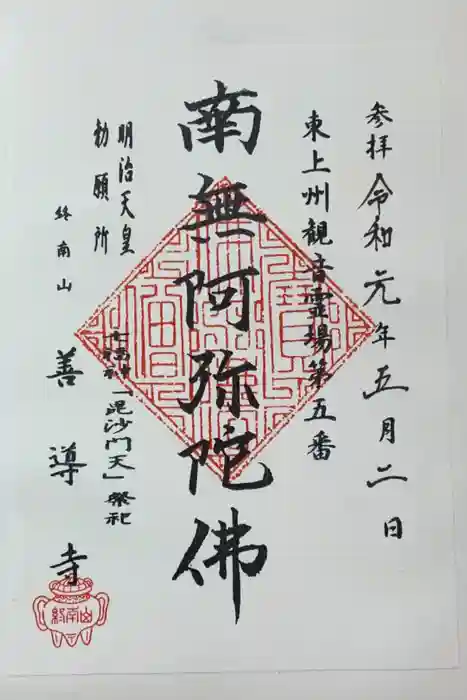 参拝 令和元年五月二日
東上州観音霊場第五番
南無阿弥陀佛
明治天皇
勅願所
七福神「毘沙門天」祭祀
終南山 善導寺
終南山